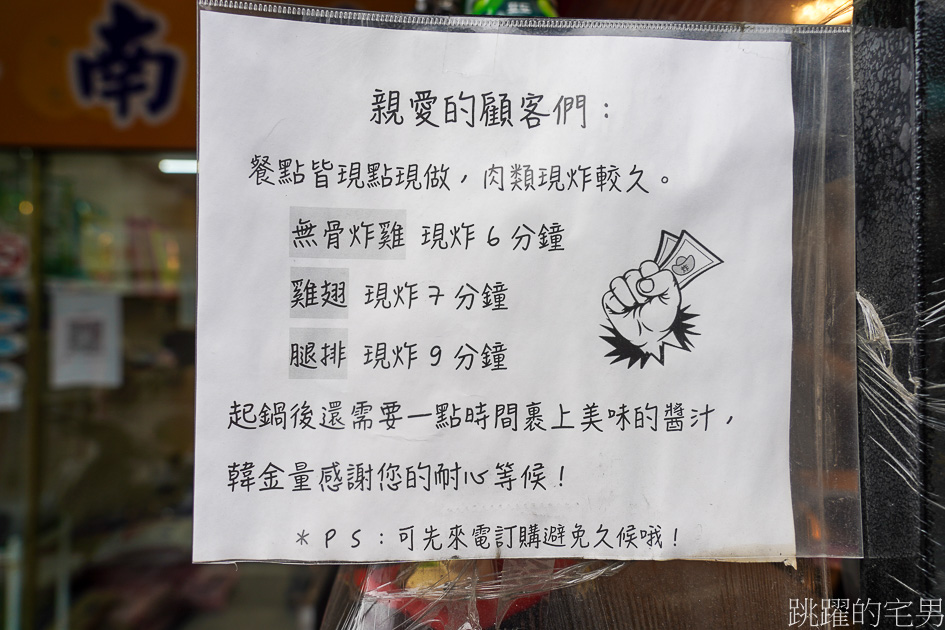 南
親愛的顧客們：
餐點皆現點現做，肉類現炸較久。
無骨炸雞 現炸 6 分鐘
雞翅 現炸 7 分鐘
腿排 現炸 9 分鐘
起鍋後還需要一點時間裹上美味的醬汁，
韓金量感謝您的耐心等候！
＊ＰＳ：可先來電訂購避免久候哦！
跳躍的宅男